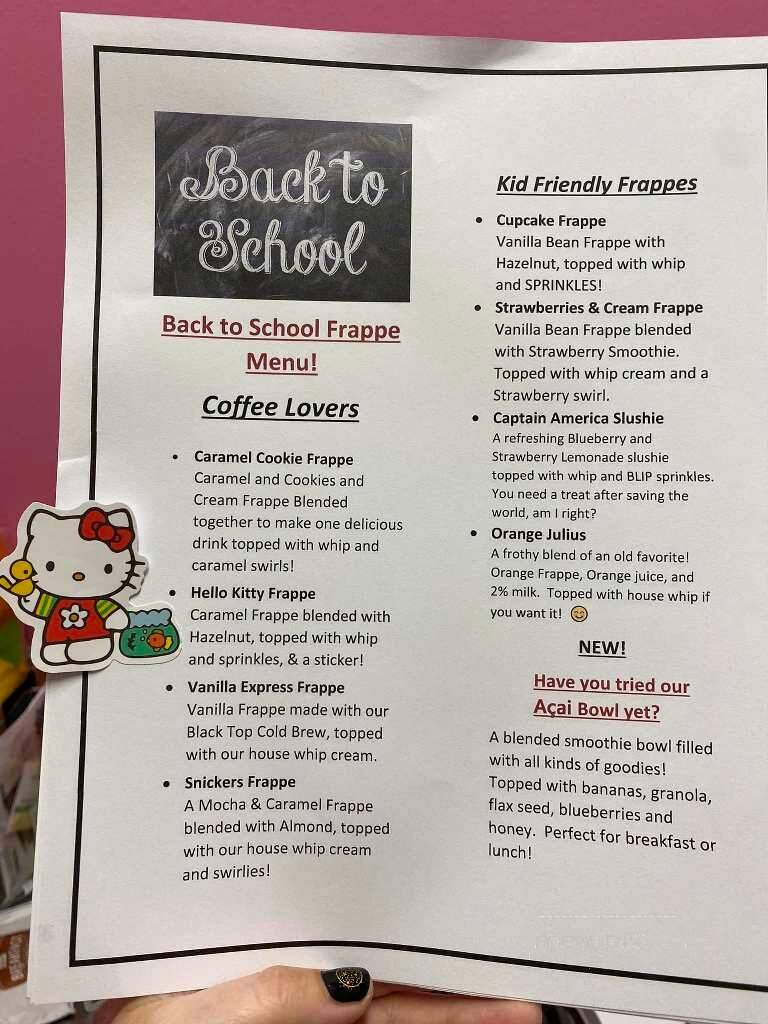 Back to
School
Back to School Frappe
Menu!
Coffee Lovers
• Caramel Cookie Frappe
Caramel and Cookies and
Cream Frappe Blended
together to make one delicious
drink topped with whip and
caramel swirls!
• Hello Kitty Frappe
Caramel Frappe blended with
Hazelnut, topped with whip
and sprinkles, & a sticker!
• Vanilla Express Frappe
Vanilla Frappe made with our
Black Top Cold Brew, topped
with our house whip cream.
• Snickers Frappe
A Mocha & Caramel Frappe
blended with Almond, topped
with our house whip cream
and swirlies!
Kid Friendly Frappes
• Cupcake Frappe
Vanilla Bean Frappe with
Hazelnut, topped with whip
and SPRINKLES!
• Strawberries & Cream Frappe
Vanilla Bean Frappe blended
with Strawberry Smoothie.
Topped with whip cream and a
Strawberry swirl.
• Captain America Slushie
A refreshing Blueberry and
Strawberry Lemonade slushie
topped with whip and BLIP sprinkles.
You need a treat after saving the
world, am I right?
• Orange Julius
A frothy blend of an old favorite!
Orange Frappe, Orange juice, and
2% milk. Topped with house whip if
you want it! 😊
NEW!
Have you tried our
Açai Bowl yet?
A blended smoothie bowl filled
with all kinds of goodies!
Topped with bananas, granola,
flax seed, blueberries and
honey. Perfect for breakfast or
lunch!